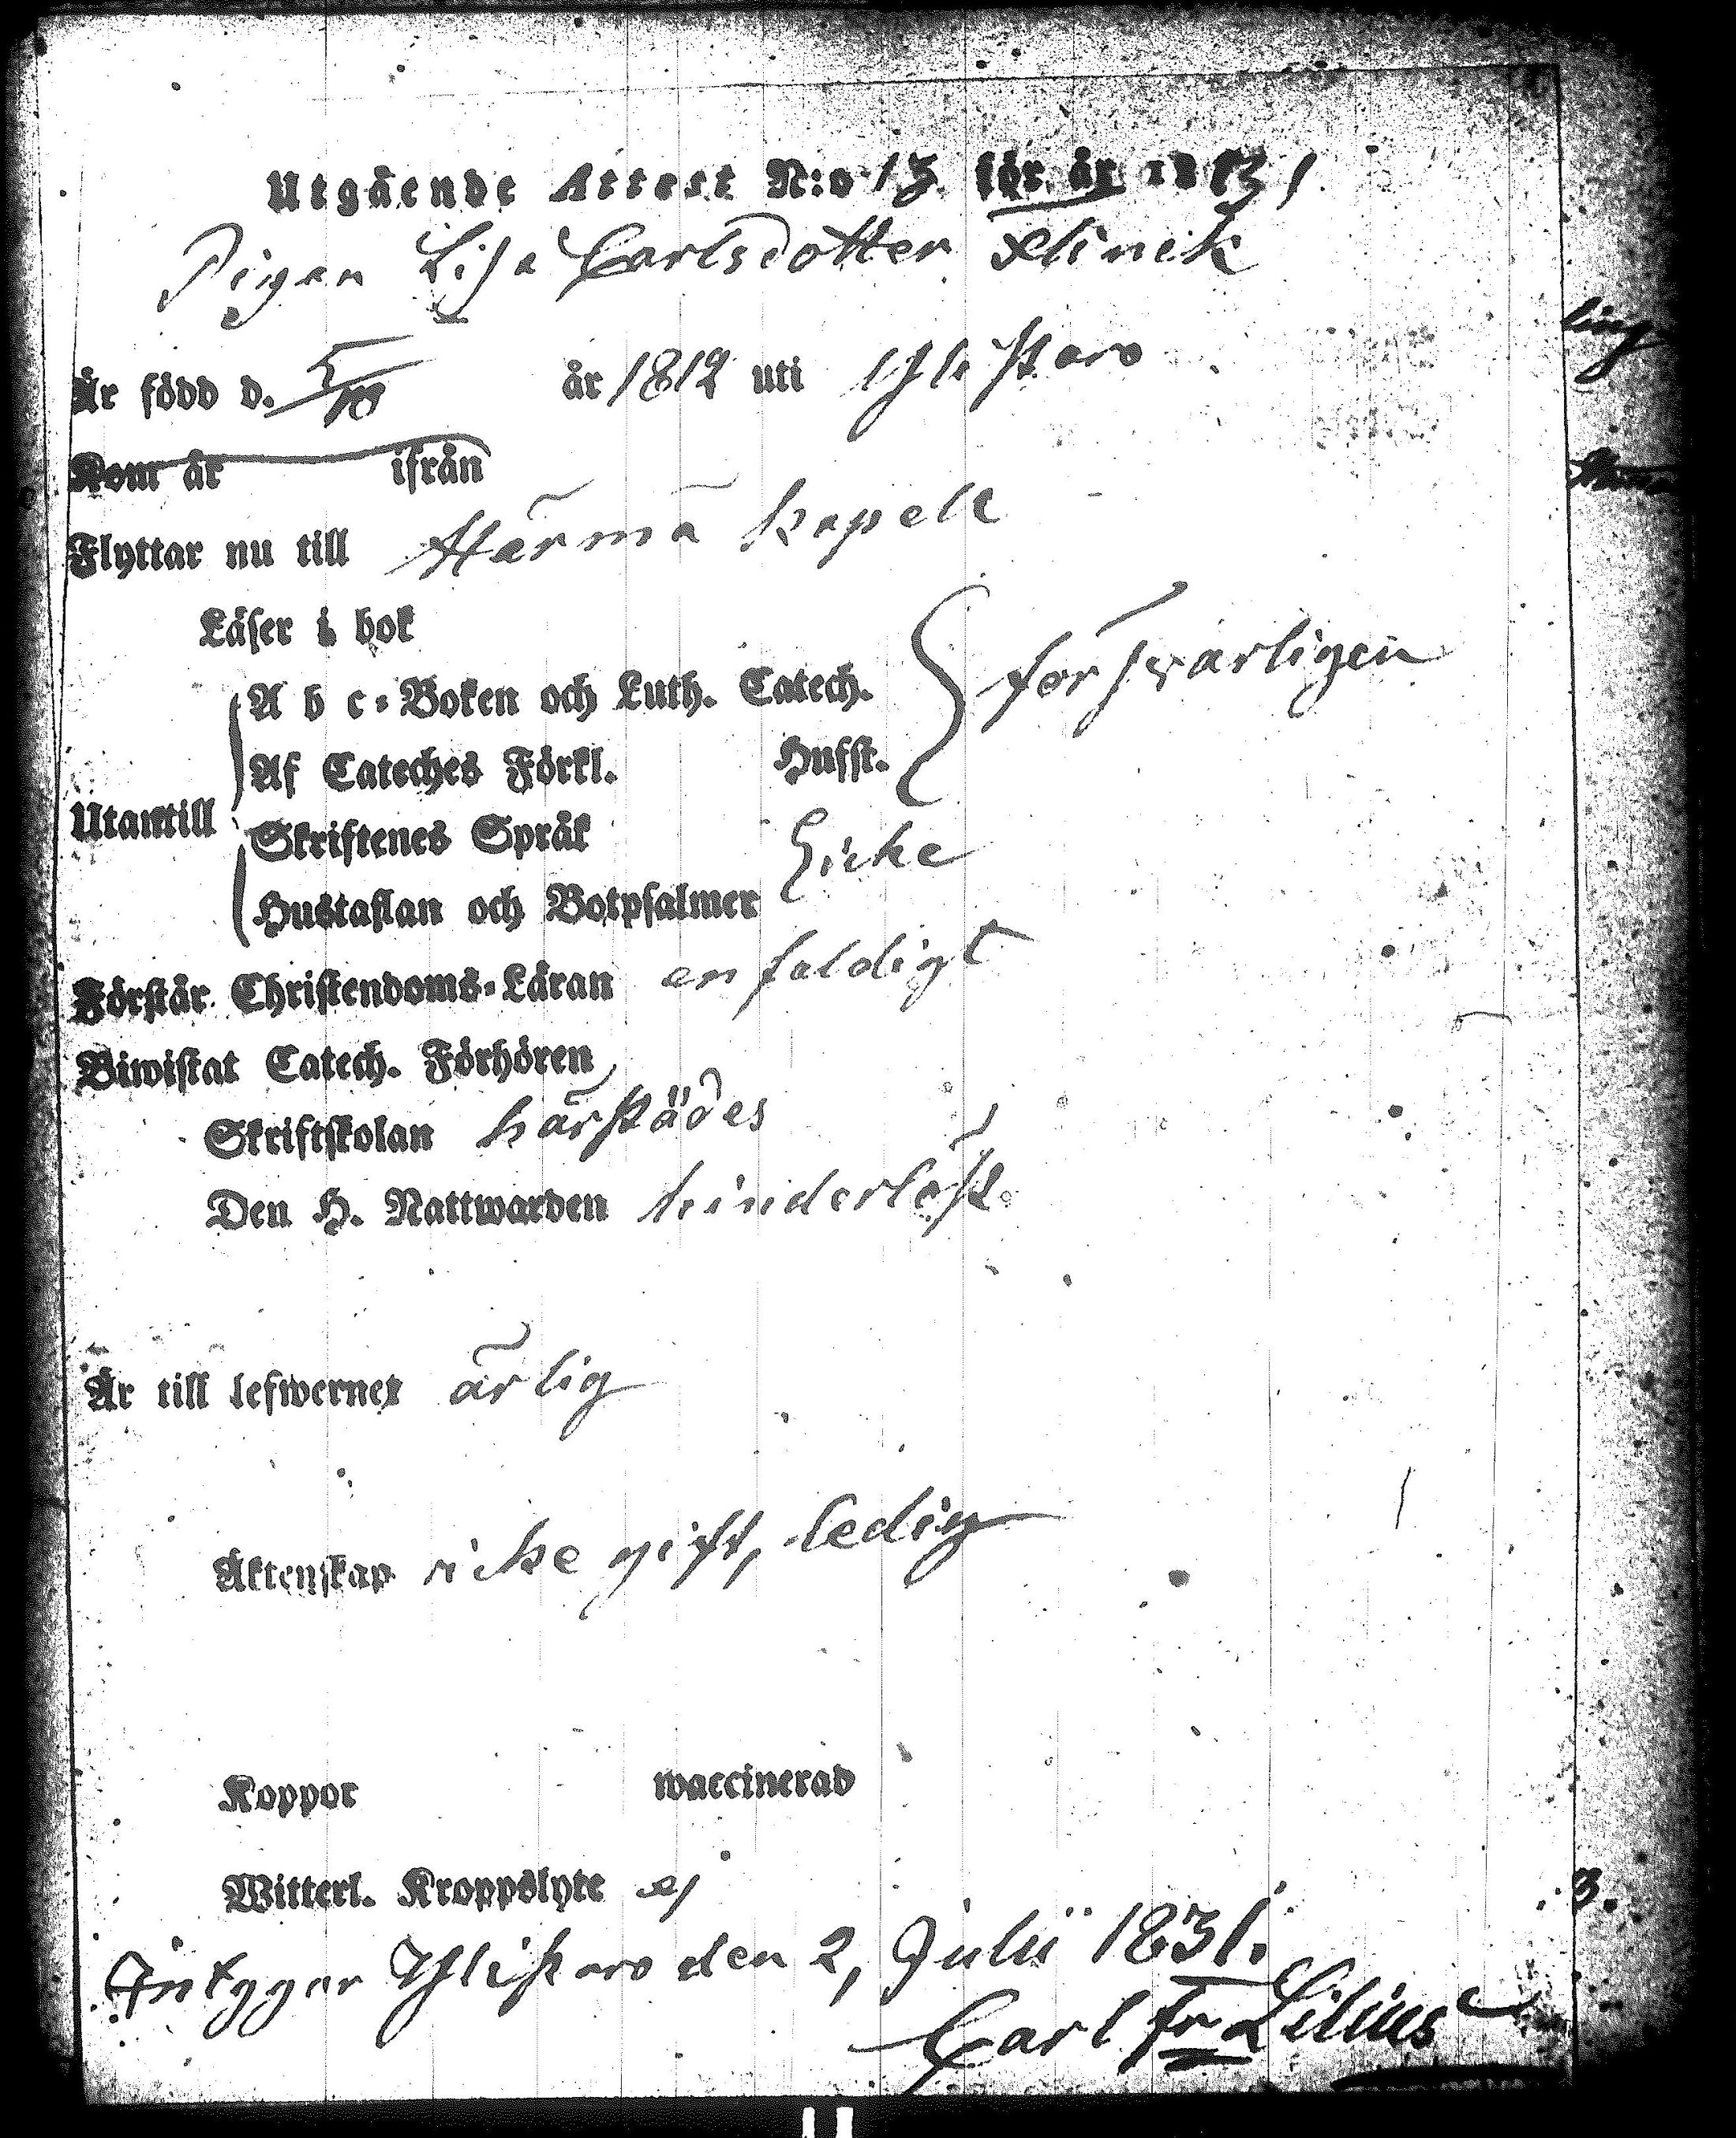 Utgående Attest N:o 13. för år 1831
Pigan Lisa Carlsdotter Klinck
Är född d. 5/10 år 1812 uti Ylistaro
Kom år ifrån
Flyttar nu till Härmä kapell
Läser i bok
A b c-Boken och Luth. Catech. försvarligen
Af Cateches Förkl. Hufst.
Utantill
Skriftenes Språk icke
Hustaflan och Botpsalmer
Förstår Christendoms-Läran enfaldigt
Biwistat Catech. Förhören
Skriftskolan härstädes
Den H. Nattwarden hinderlöst.
Är till lefwernet ärlig
Äktenskap icke gift, ledig
Koppor waccinerad
Witterl. Kroppslyte ej
Intygar Ylistaro den 2, Julii 1831.
Carl Fr Lilius
3.